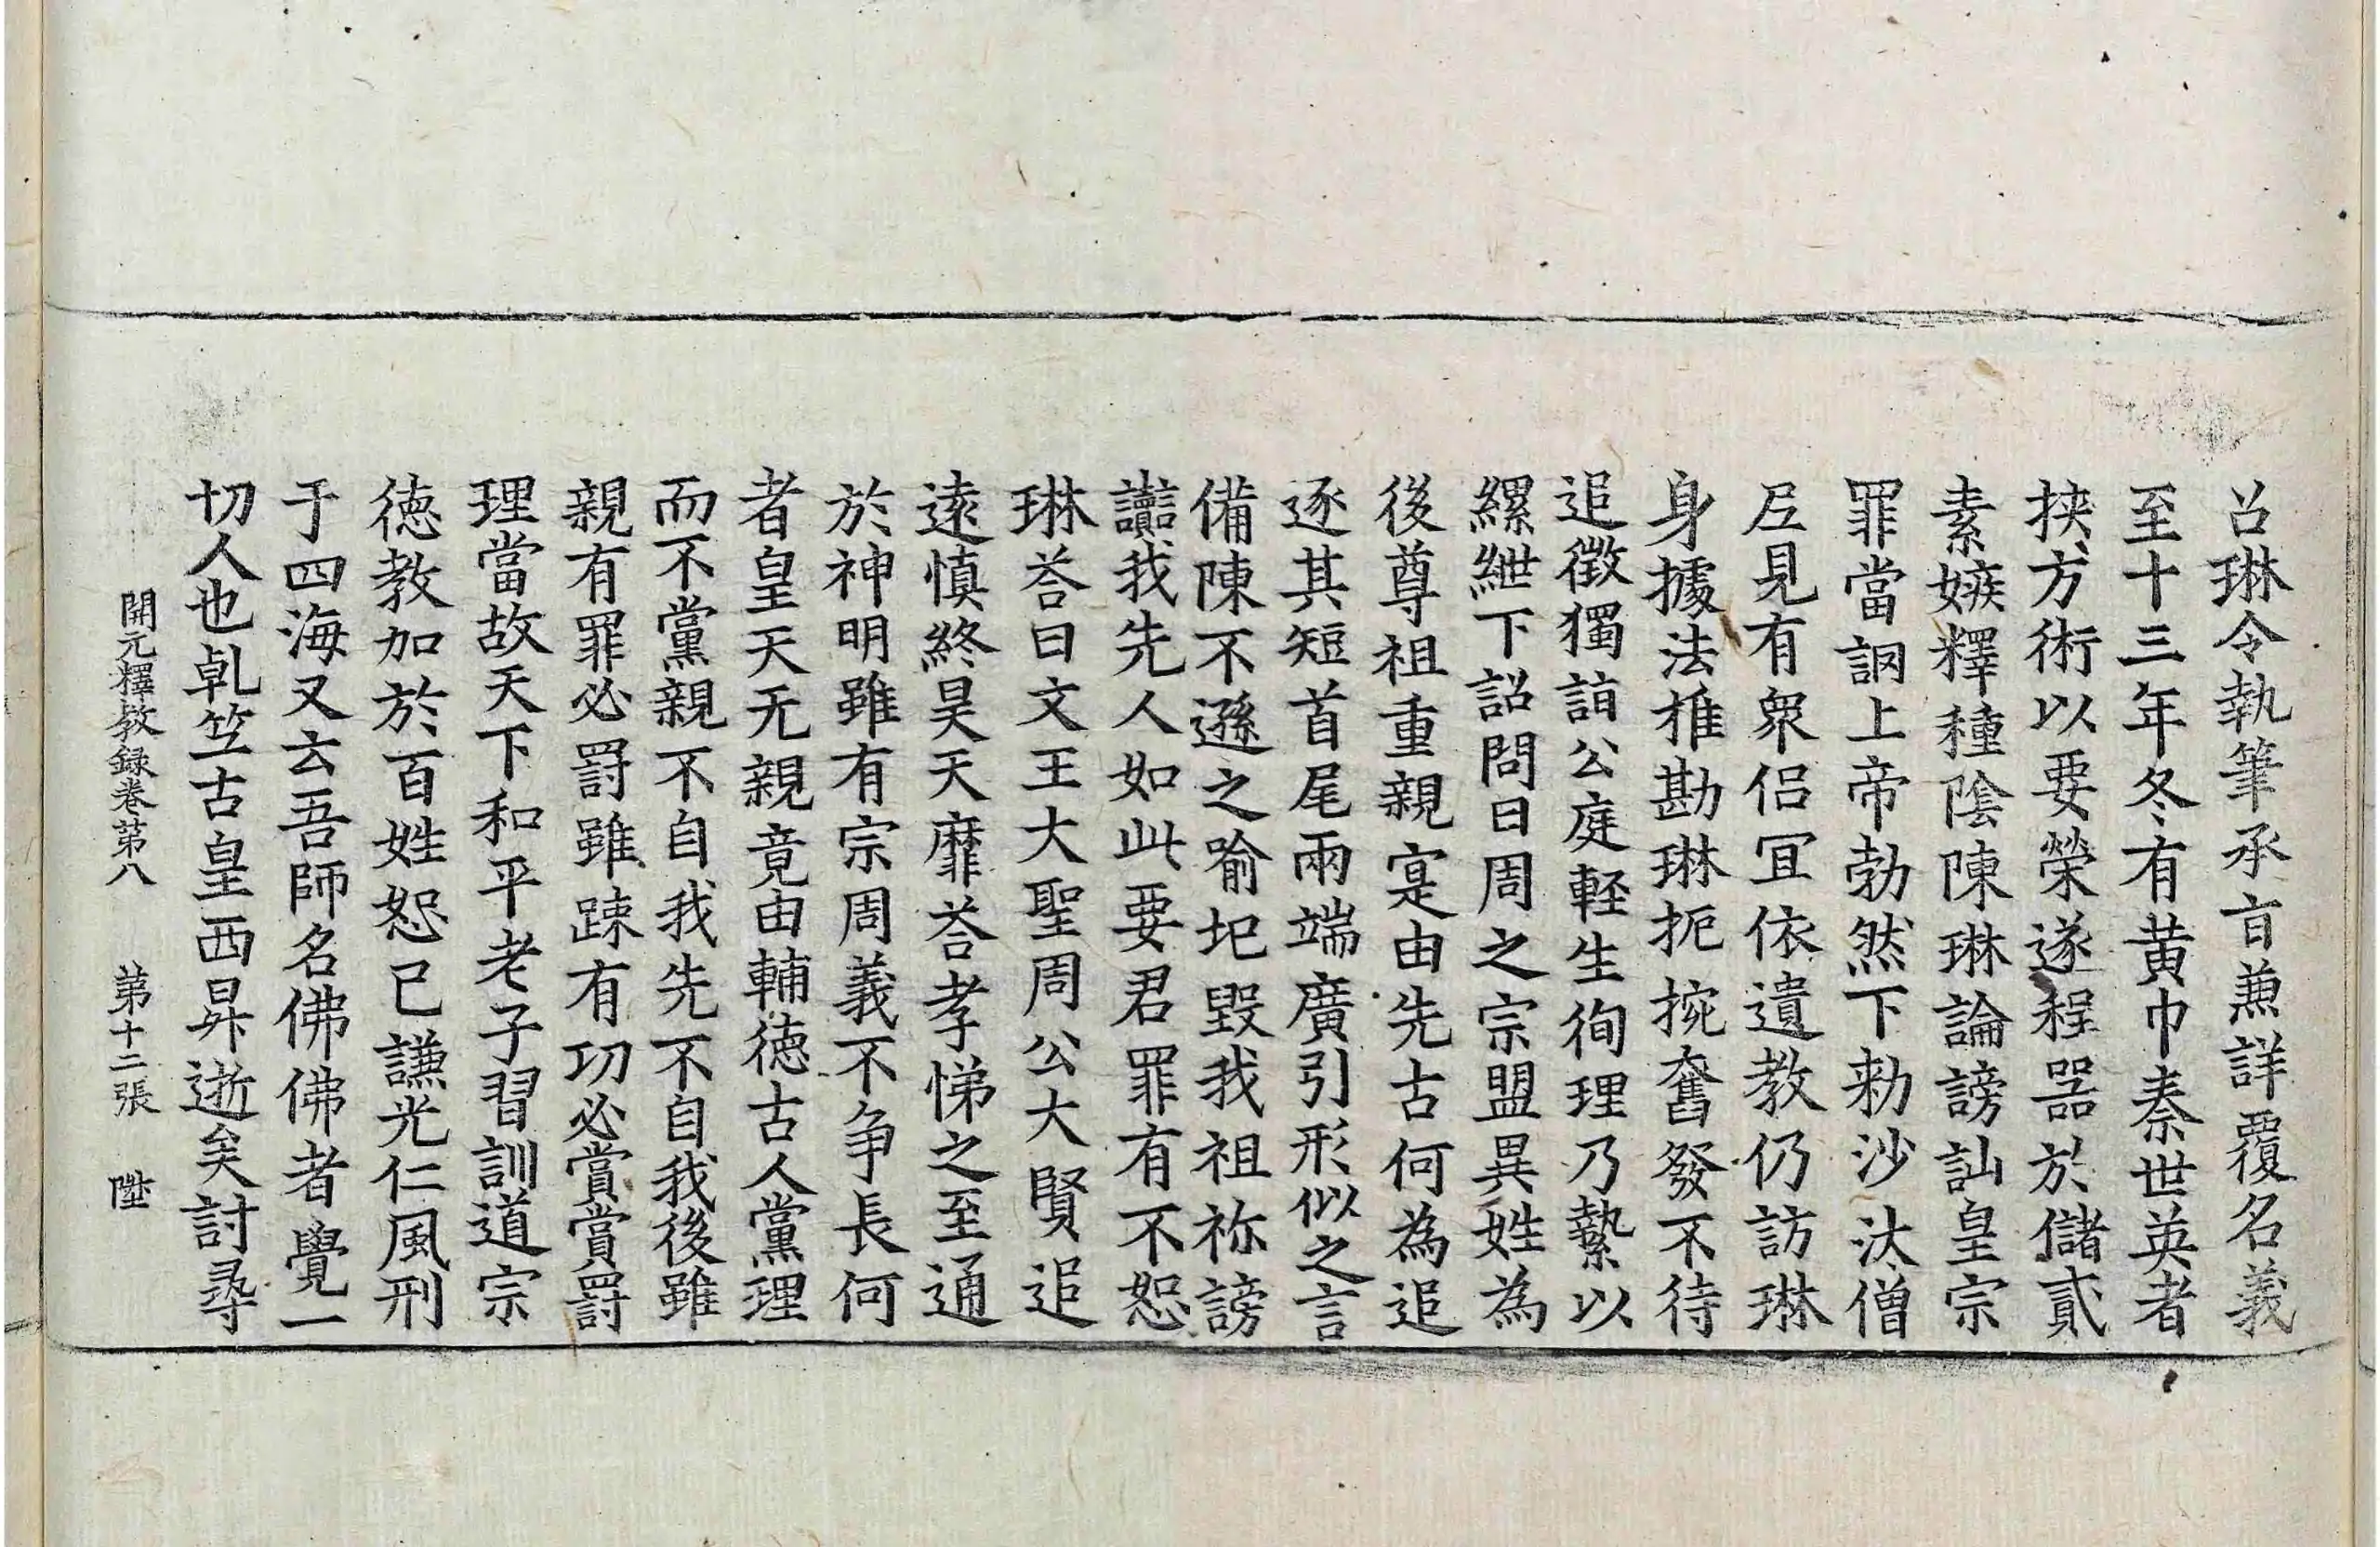 召琳令執筆承旨兼詳覆名義
至十三年冬有黄巾秦世英者
挾方術以要榮遂程器於儲貳
素嫉釋種陰陳琳論謗訕皇宗
罪當誷上帝勃然下勑沙汰僧
尼見有衆侣冝依遺教仍訪琳
身據法推勘琳扼捥奮發不待
追徵獨詣公庭軽生徇理乃縶以
縲紲下詔問曰周之宗盟異姓為
後尊祖重親寔由先古何為追
逐其短首尾兩端廣引形似之言
備陳不遜之喻圮毀我祖祢謗
讟我先人如此要君罪有不恕
琳荅曰文王大聖周公大賢追
逺慎終昊天靡荅孝悌之至通
於神明雖有宗周義不争長何
者皇天无親竟由輔徳古人黨理
而不黨親不自我先不自我後雖
親有罪必罸雖踈有功必賞賞罸
理當故天下和平老子習訓道宗
徳教加於百姓恕己謙光仁風刑
于四海又云吾師名佛佛者覺一
切人也乹竺古皇西昇逝矣討尋
開元釋教録卷苐八 苐十二張 陞